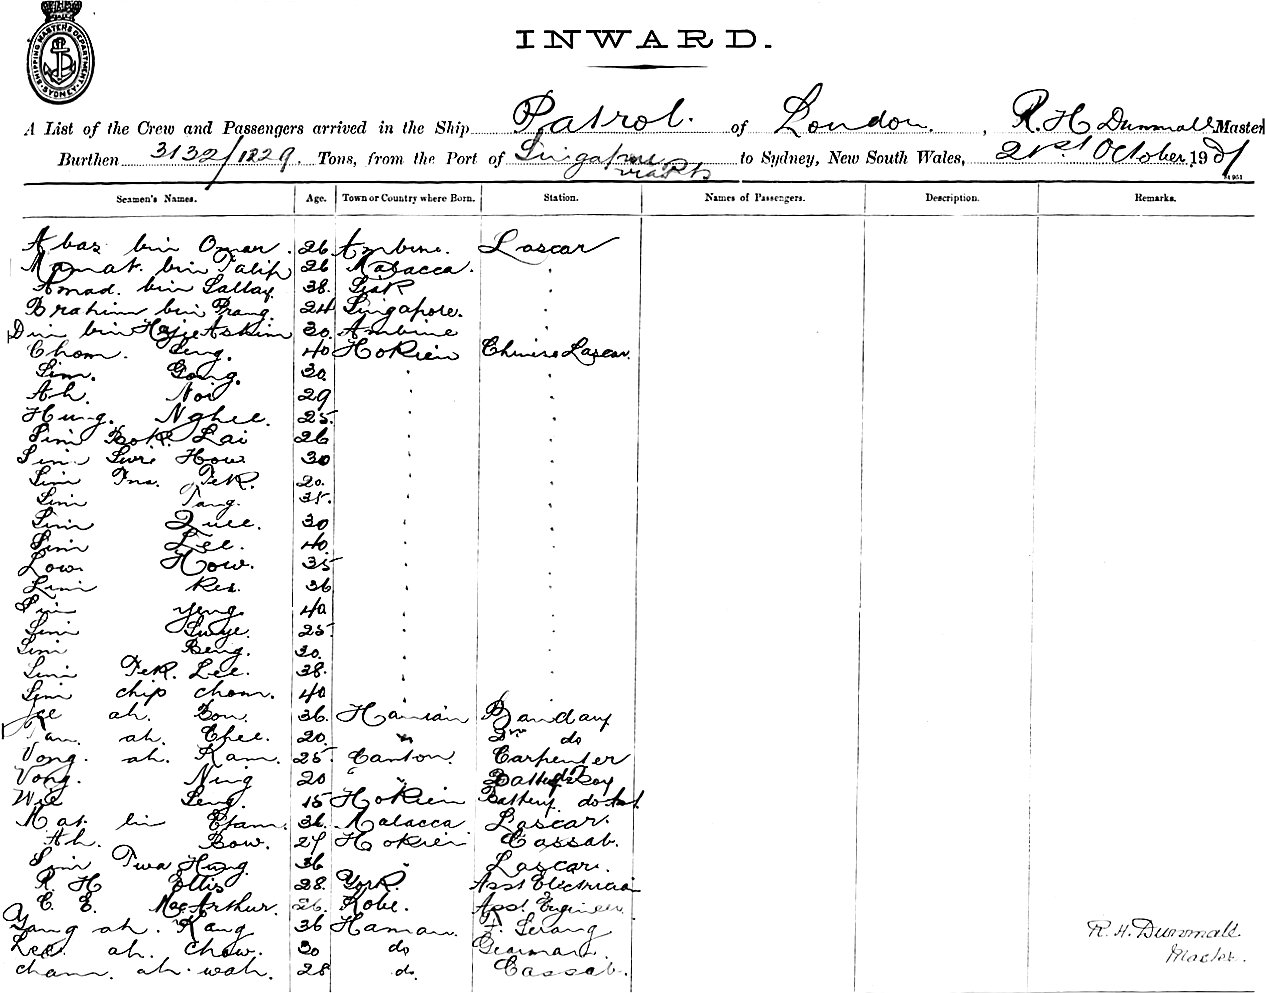 SHIPPING MASTER'S DEPARTMENT SYDNEY
INWARD.
A List of the Crew and Passengers arrived in the Ship Patrol. of London. , R. H Dunmall Master
Burthen 3132/1829. Tons, from the Port of Singapore via to Sydney, New South Wales, 21st October 1901
Seamen's Names. Age. Town or Country where Born. Station. Names of Passengers. Description. Remarks.
Abas bin Omar. 26 Ambine. Lascar
Mamat. bin Talip 26 Malacca.
Amad. bin Sallay 38. Siak
Brahim bin Prang. 24 Singapore.
Din bin Hajie Askim 30. Ambine
Chom. Seng. 40 Hokien Chinese Lascar.
Lim. Gong. 30
Ah. Noi 29
Hung. Nghee. 25.
Lim Bok Lai 26
Lim Swie How 30
Lim Tek. 20.
Lim Tang. 35.
Lim Quee. 30
Lim Lee. 40
Low. How. 35
Lim Kee. 36
Lim Yeng 40
Lim Swye. 25
Lim Beng. 30.
Lim Tek. Lee. 38.
Lim chip chom. 40
Lee ah. Bow. 36. Hainan Bandary
Tan. ah. Chee. 20. " 2nd do
Vong. ah. Kam. 25. Canton. Carpenter
Vong. Ning 20 " Battery Boy
Wee Seng. 15 Hokien Battery do
Mat bin Etam. 36. Malacca Lascar.
Ah. Bow. 27 Hokien Cassab.
Lim Twa Hung 36 " Lascar.
R. H Ellis 28. York. Asst Electrician
C. E. MacArthur. 26. Kobe. Asst. Engineer.
Yang ah. Kang 36 Hainan. F. Serang
Lee. ah. Chow. 30 do Gunman.
Cham. ah. wah. 28 do. Cassab.
R. H. Dunmall.
Master.